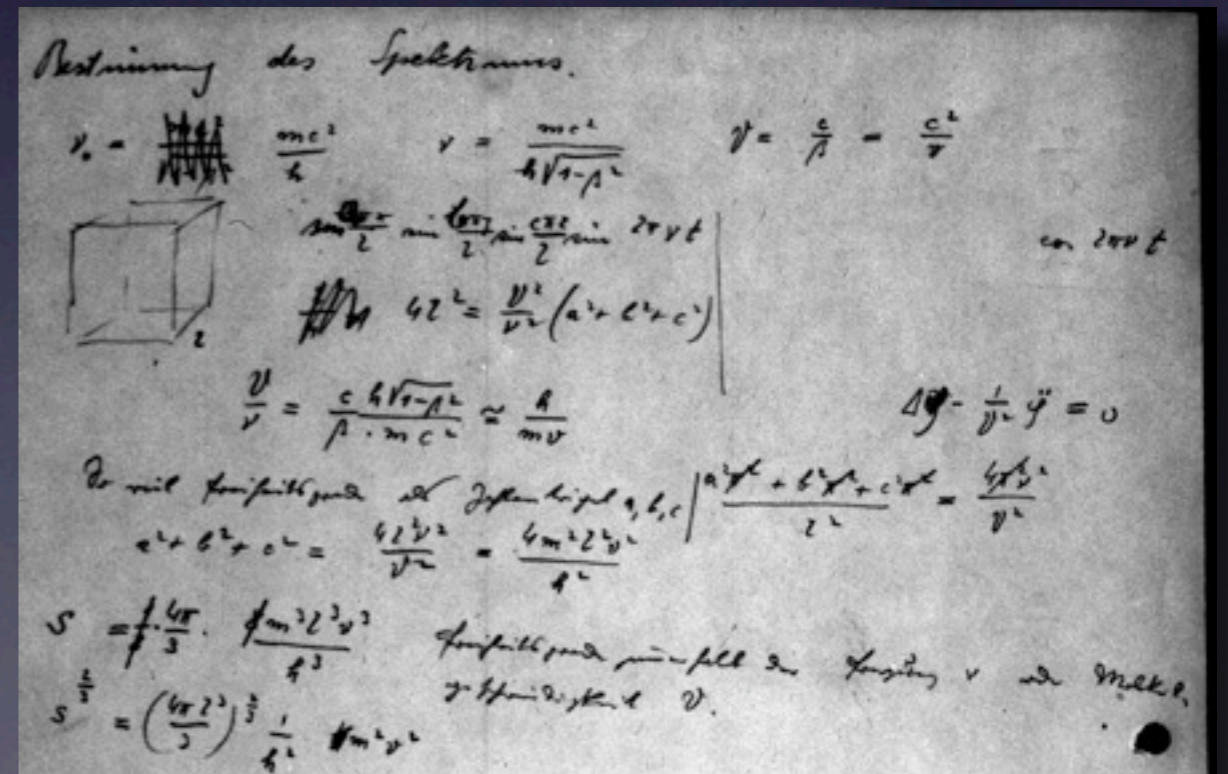 Bestimmung des Spektrums.
ν₀ = mc²/h   ν = mc²/(h√(1-β²))   V = c/β = c²/v
sin aπx/l sin bπy/l sin cπz/l sin 2πνt   cos 2πνt
l
4l² = V²/ν² (a² + b² + c²)
V/ν = c h√(1-β²)/(β · mc²) ≃ h/(mv)   Δφ - 1/V² φ̈ = 0
So viel Freiheitsgrade als Zahlentripel a, b, c | (a²π² + b²π² + c²π²)/l² = 4π²ν²/V²
a² + b² + c² = 4l²ν²/V² = 4m²l²v²/h²
S = 4π/3 · m³l³v³/h³   Freiheitsgrade unterhalb der ν oder Molek.
S^(2/3) = (4πl³/3)^(2/3) 1/h² m²v²   geschwindigkeit v.